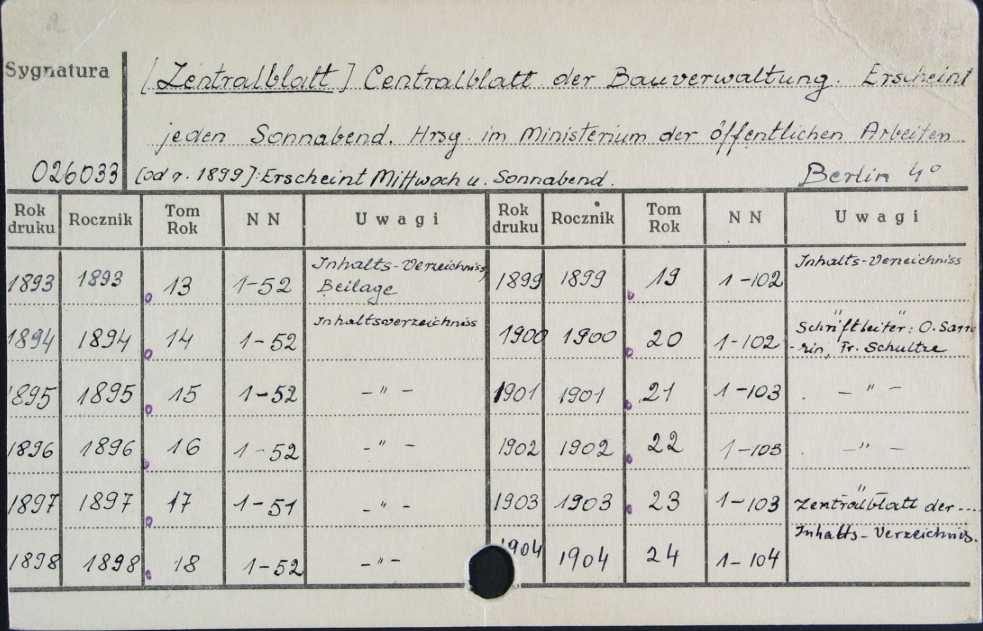 Sygnatura
[Zentralblatt] Centralblatt der Bauverwaltung. Erscheint
jeden Sonnabend. Hrsg. im Ministerium der öffentlichen Arbeiten
026033 [od r. 1899]: Erscheint Mittwoch u. Sonnabend. Berlin 4°
Rok druku Rocznik Tom Rok N N Uwagi Rok druku Rocznik Tom Rok N N Uwagi
1893 1893 13 1-52 Inhalts-Verzeichniss, Beilage 1899 1899 19 1-102 Inhalts-Verzeichniss
1894 1894 14 1-52 Inhaltsverzeichniss 1900 1900 20 1-102 Schriftleiter: O. Sarrazin, Fr. Schultze
1895 1895 15 1-52 -"- 1901 1901 21 1-103 -"-
1896 1896 16 1-52 -"- 1902 1902 22 1-103 -"-
1897 1897 17 1-51 -"- 1903 1903 23 1-103 Zentralblatt der ---
1898 1898 18 1-52 -"- 1904 1904 24 1-104 Inhalts-Verzeichnis.